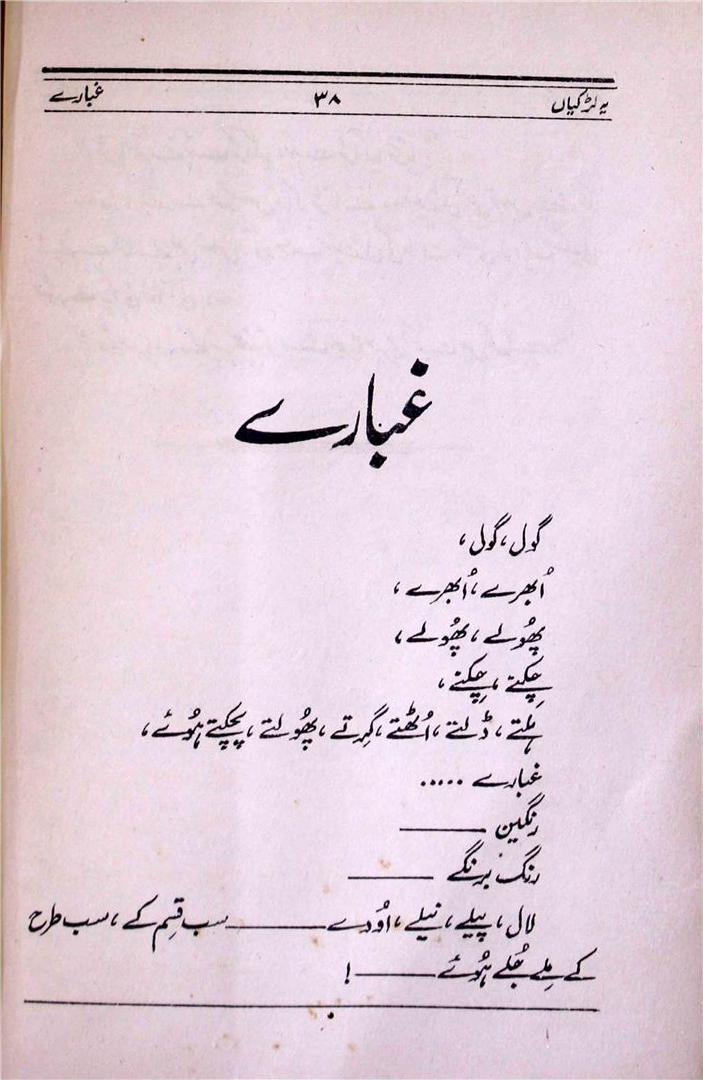 یہ لڑکیاں ۳۸ غبارے
غبارے
گول، گول،
اُبھرے، اُبھرے،
پھُولے، پھُولے،
چِکنے، چِکنے،
ہلتے، ڈلتے، اُٹھتے، گِرتے، پھُولتے، پچکتے ہُوئے،
غبارے .....
رنگین ———
رنگ برنگے ———
لال، پیلے، نیلے، اُودے ——— سب قِسم کے، سب طرح
کے مِلے جُلے ہُوئے ——— !